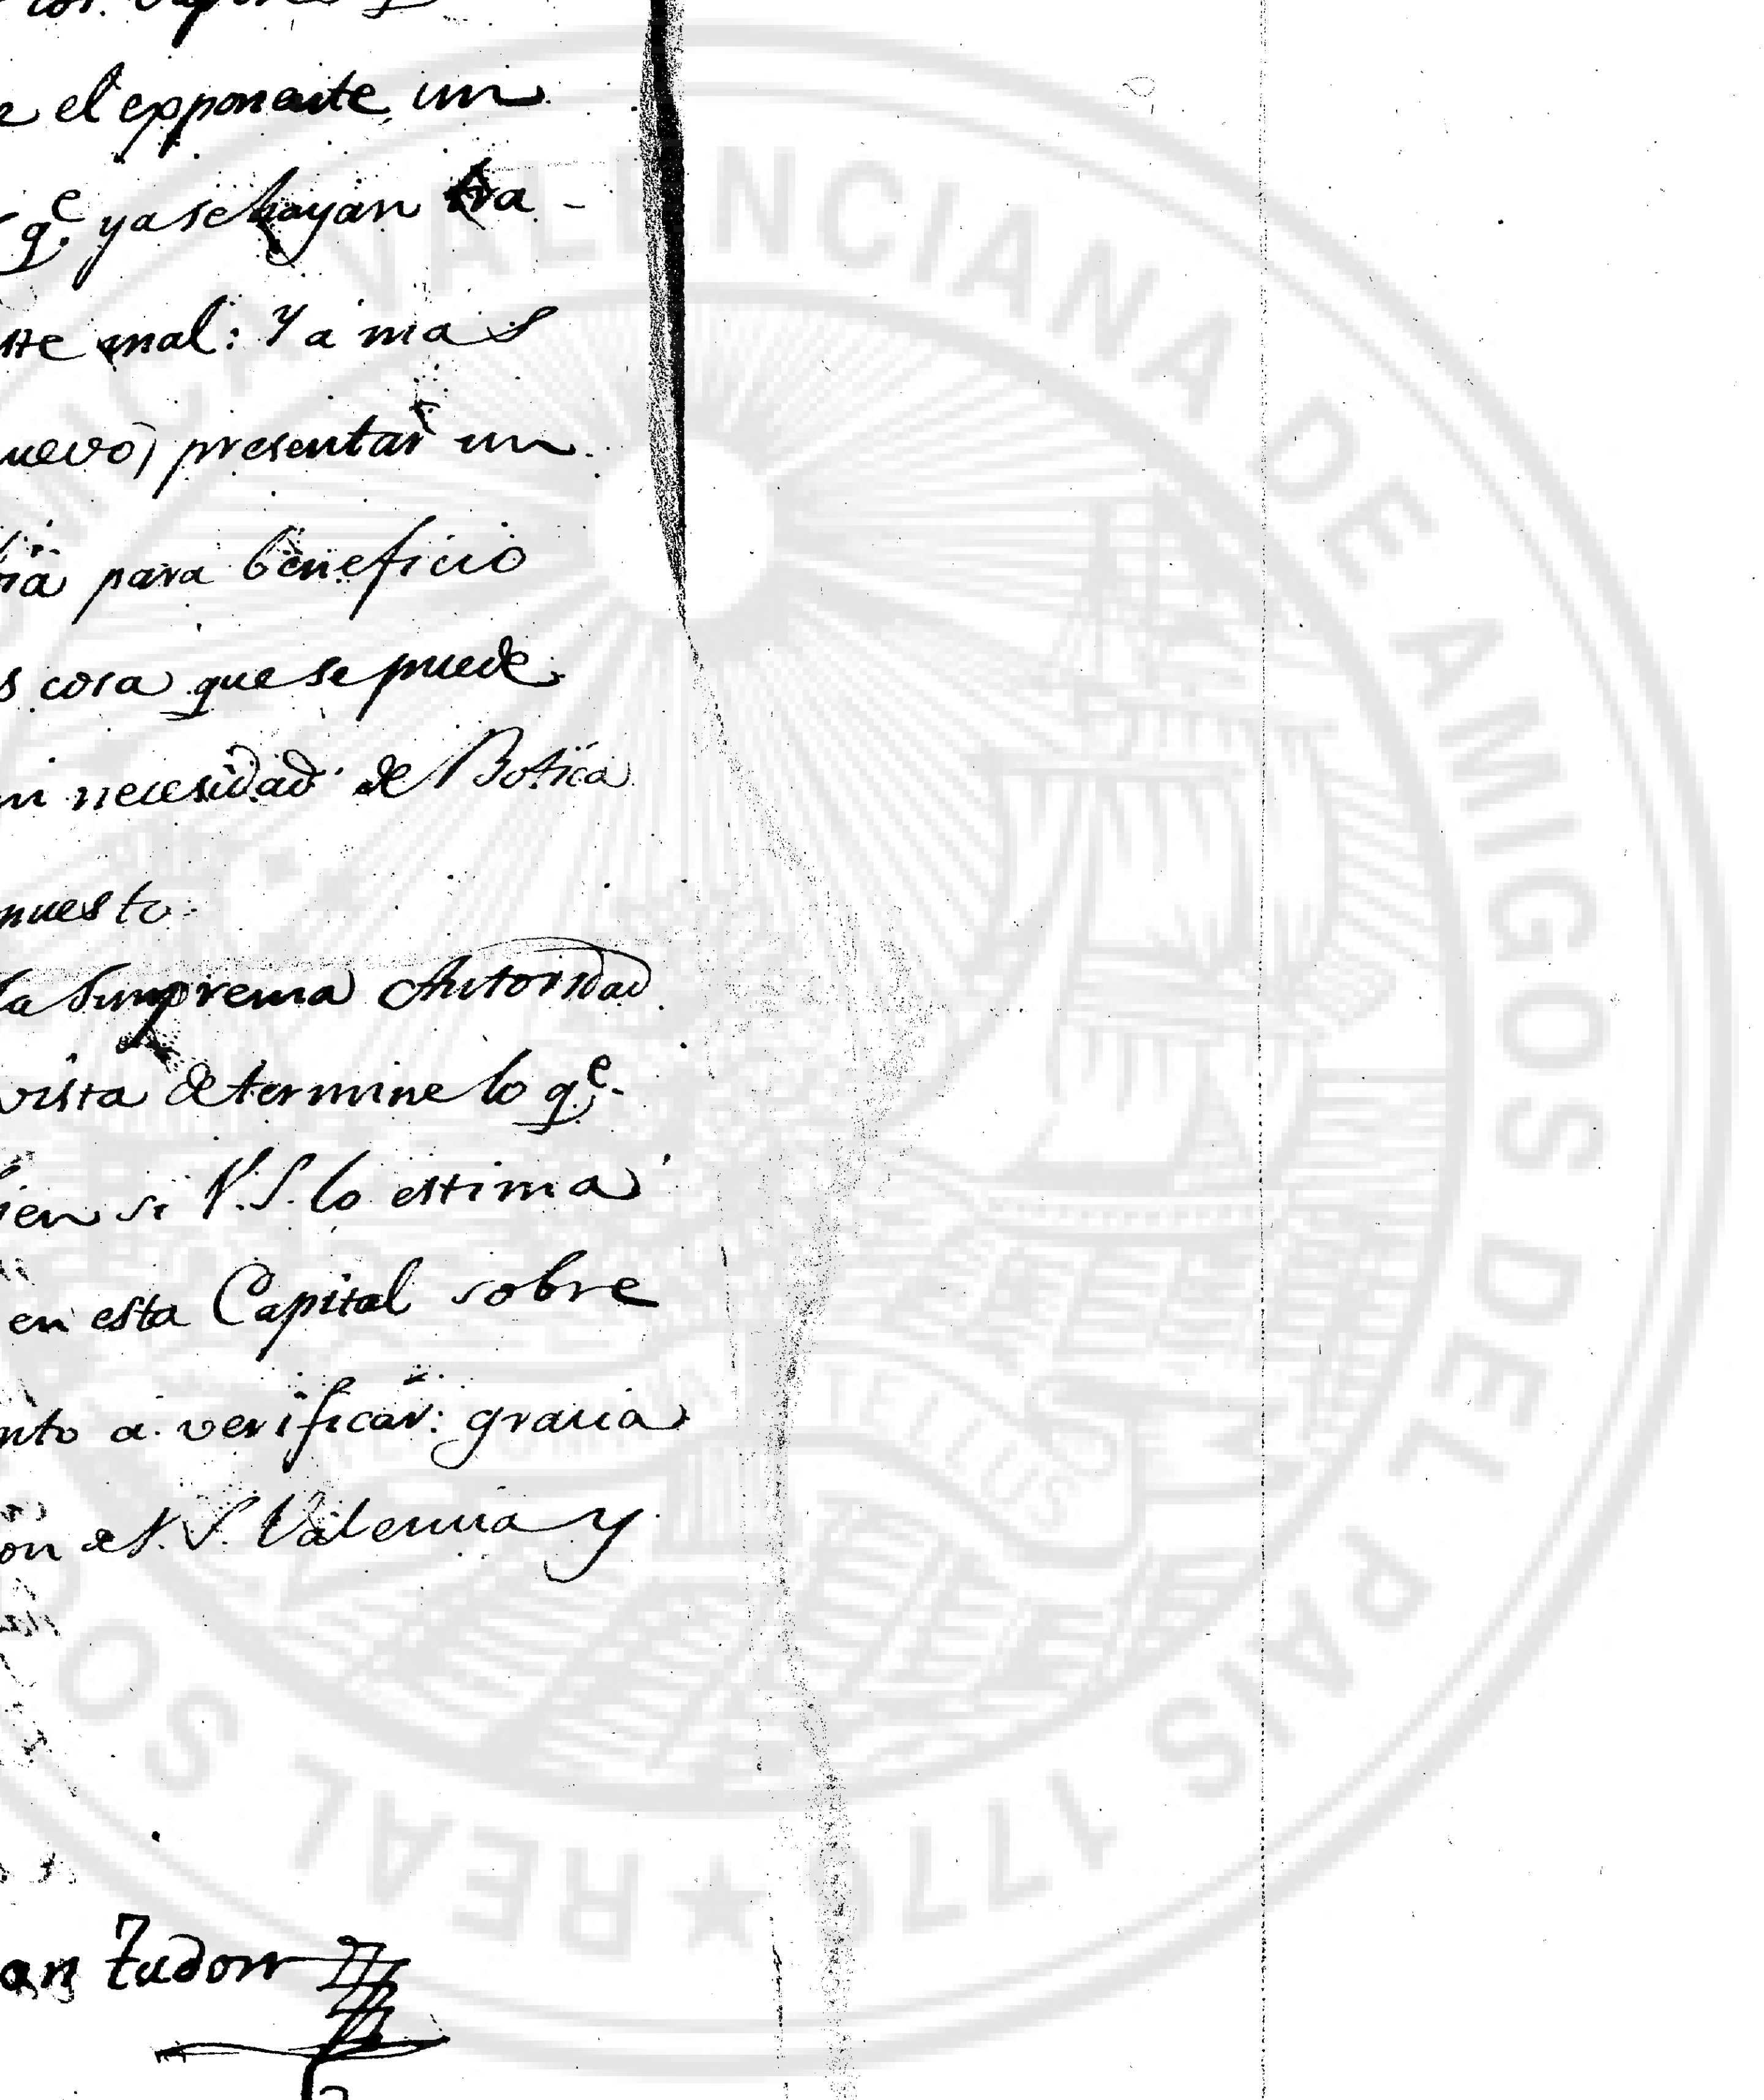 el expponente, un
q.e ya se hayan tra-
ste mal: Y a mas
nuevo) presentar un
para beneficio
s cosa que se puede
necesidad de Botica
puesto:
la Sumprema Autoridad
vista determine lo q.e
ien si V.S. lo estima
en esta Capital sobre
nto a verificar: gracia
on de V.S. Valencia y
an Tudorr
REAL SO
MICA VALENCIANA DE AMIGOS DEL PAIS 177